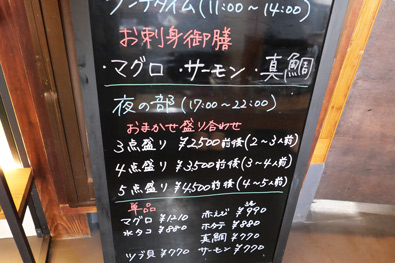 ランチタイム(11:00~14:00)
お刺身御膳
・マグロ ・サーモン ・真鯛
夜の部(17:00~22:00)
おまかせ盛り合わせ
3点盛り ¥2,500前後(2~3人前)
4点盛り ¥3,500前後(3~4人前)
5点盛り ¥4,500前後(4~5人前)
単品
マグロ ¥1210 赤エビ ¥990
水タコ ¥880 ホタテ ¥880
真鯛 ¥770
ツブ貝 ¥770 サーモン ¥770